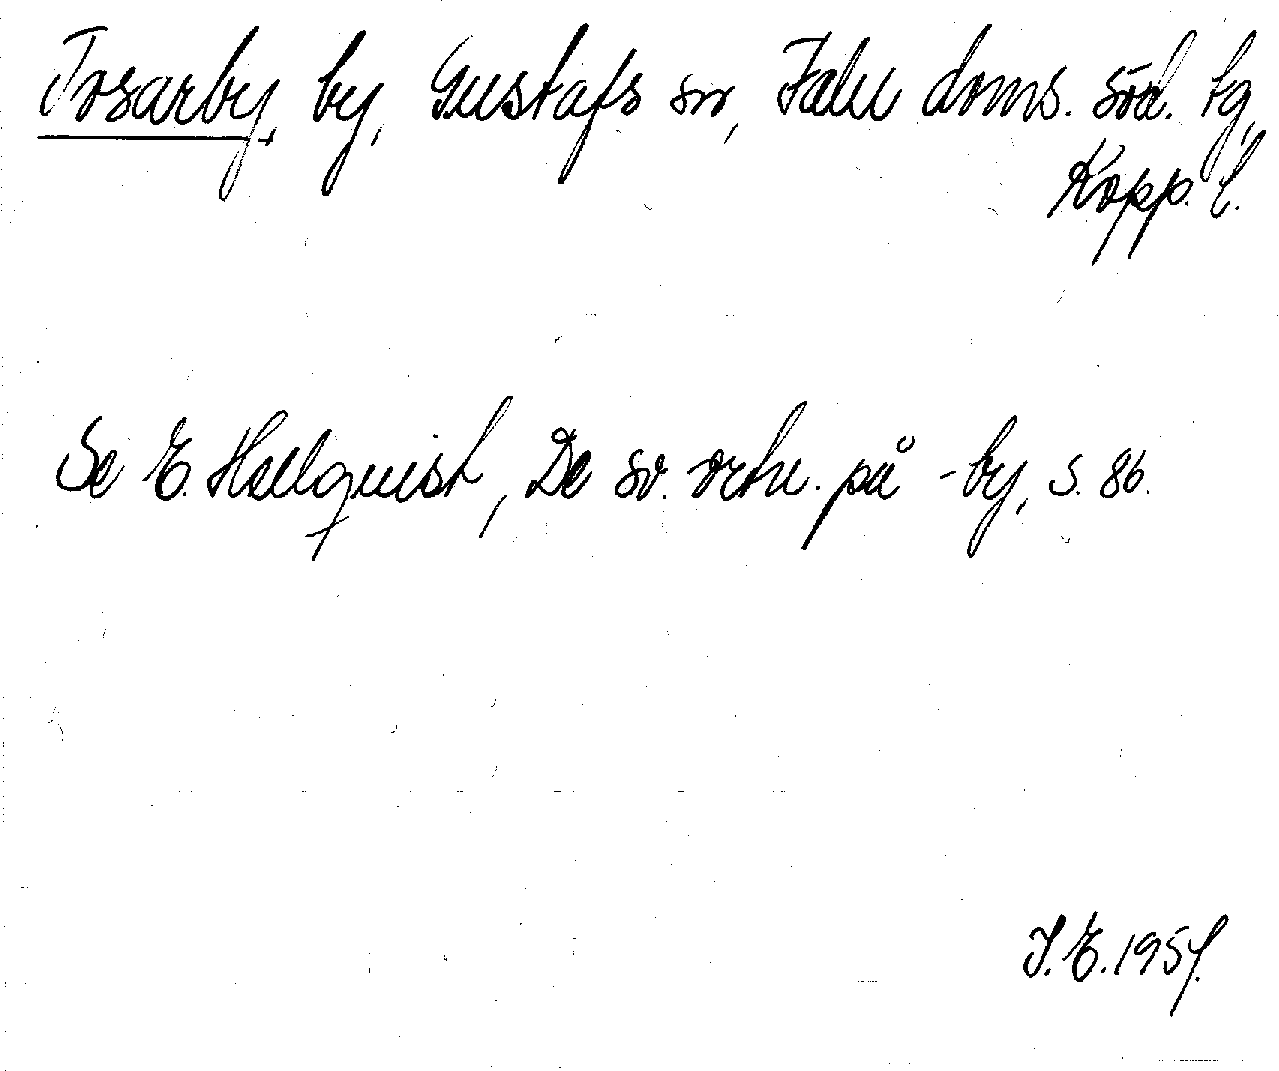 Tosarby, by, Gustafs sn, Falu doms. söd. tg,
Kopp. l.
Se E. Hellquist, De sv. ortn. på -by, s. 86.
J. E. 1951.